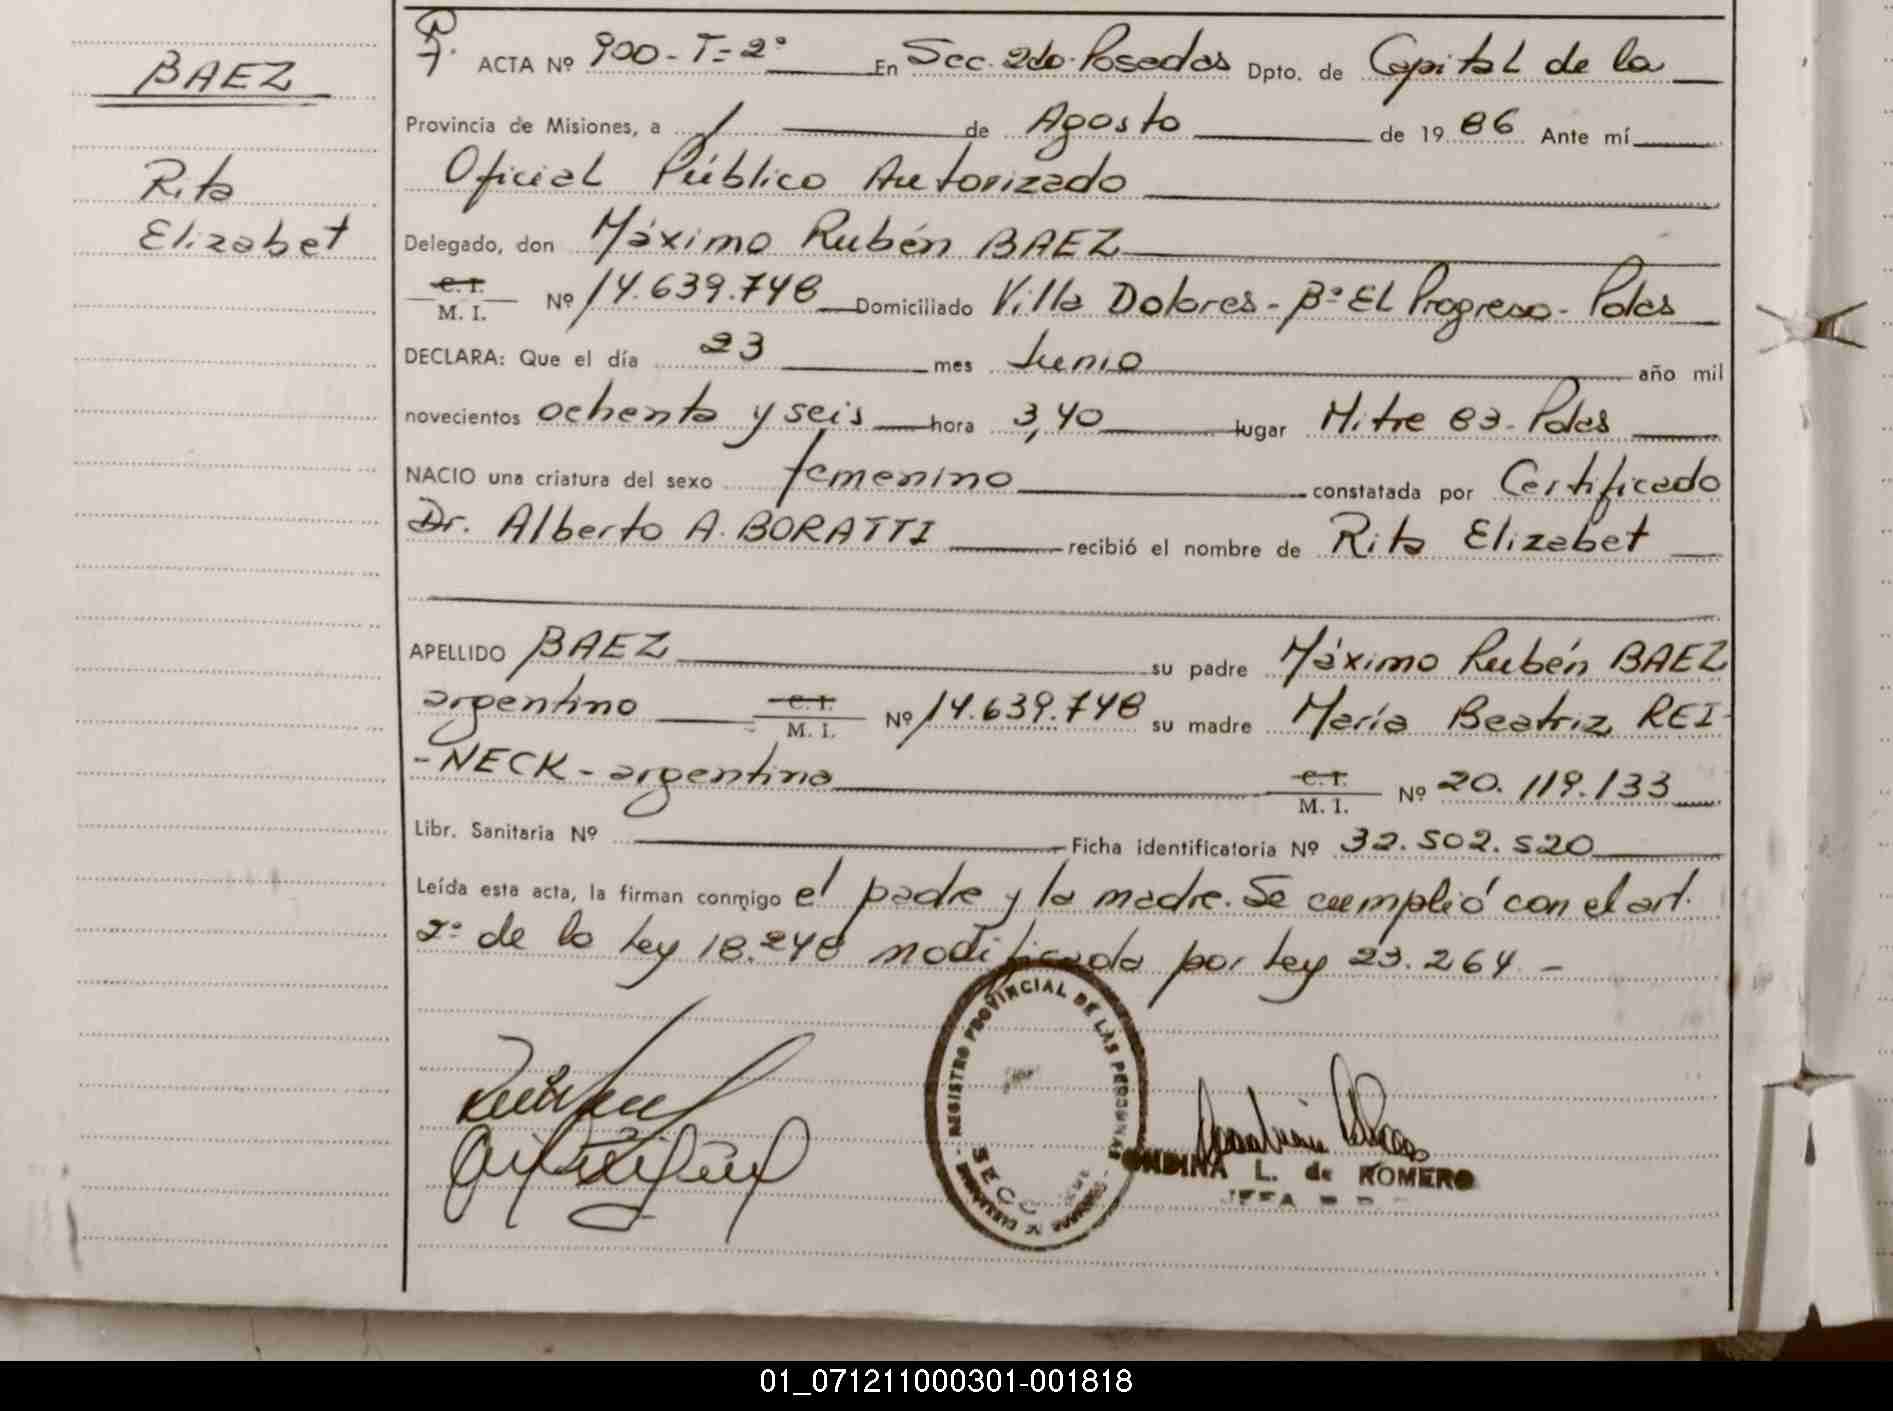 BAEZ
Rita
Elizabet
ACTA Nº 900 - T= 2º En Sec. 2do. Posadas Dpto. de Capital de la
Provincia de Misiones, a 1 de Agosto de 1986 Ante mí
Oficial Público Autorizado
Delegado, don Máximo Rubén BAEZ
C. I.
M. I. Nº 14.639.748 Domiciliado Villa Dolores - Bº El Progreso - Pdas
DECLARA: Que el día 23 mes Junio año mil
novecientos ochenta y seis hora 3,40 lugar Mitre 83 - Pdas
NACIO una criatura del sexo femenino constatada por Certificado
Dr. Alberto A. BORATTI recibió el nombre de Rita Elizabet
APELLIDO BAEZ su padre Máximo Rubén BAEZ
argentino C. I. M. I. Nº 14.639.748 su madre María Beatriz REI-
-NECK - argentina C. I. M. I. Nº 20.119.133
Libr. Sanitaria Nº Ficha identificatoria Nº 32.502.520
Leída esta acta, la firman conmigo el padre y la madre. Se cumplió con el art.
2º de la Ley 18.248 modificada por Ley 23.264 -
REGISTRO PROVINCIAL DE LAS PERSONAS
SECC
ONDINA L. de ROMERO
JEFA
01_071211000301-001818